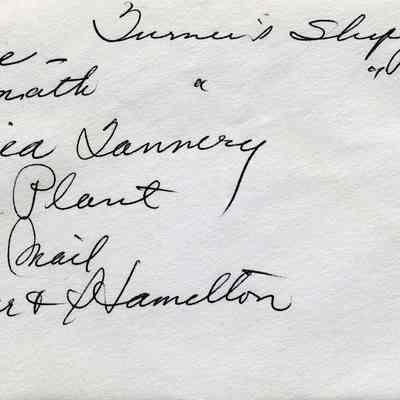 Turner's Ship
math " "
Tannery
Plant
Mail
r & Hamelton